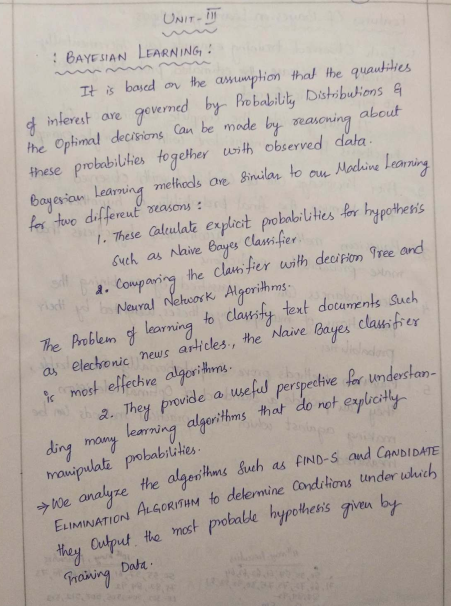 UNIT-III
: BAYESIAN LEARNING :
It is based on the assumption that the quantities
of interest are governed by Probability Distributions &
the Optimal decisions Can be made by reasoning about
these probabilities together with observed data.
Bayesian Learning methods are Similar to our Machine Learning
for two different reasons :
1. These Calculate explicit probabilities for hypothesis
Such as Naive Bayes Classifier
2. Comparing the classifier with decision Tree and
Neural Network Algorithms.
The Problem of learning to Classify text documents Such
as electronic news articles., the Naive Bayes classifier
is most effective algorithms.
2. They provide a useful perspective for understan-
ding many learning algorithms that do not explicitly
manipulate probabilities.
→ We analyze the algorithms Such as FIND-S and CANDIDATE
ELIMINATION ALGORITHM to determine Conditions under which
they Output the most probable hypothesis given by
Training Data.